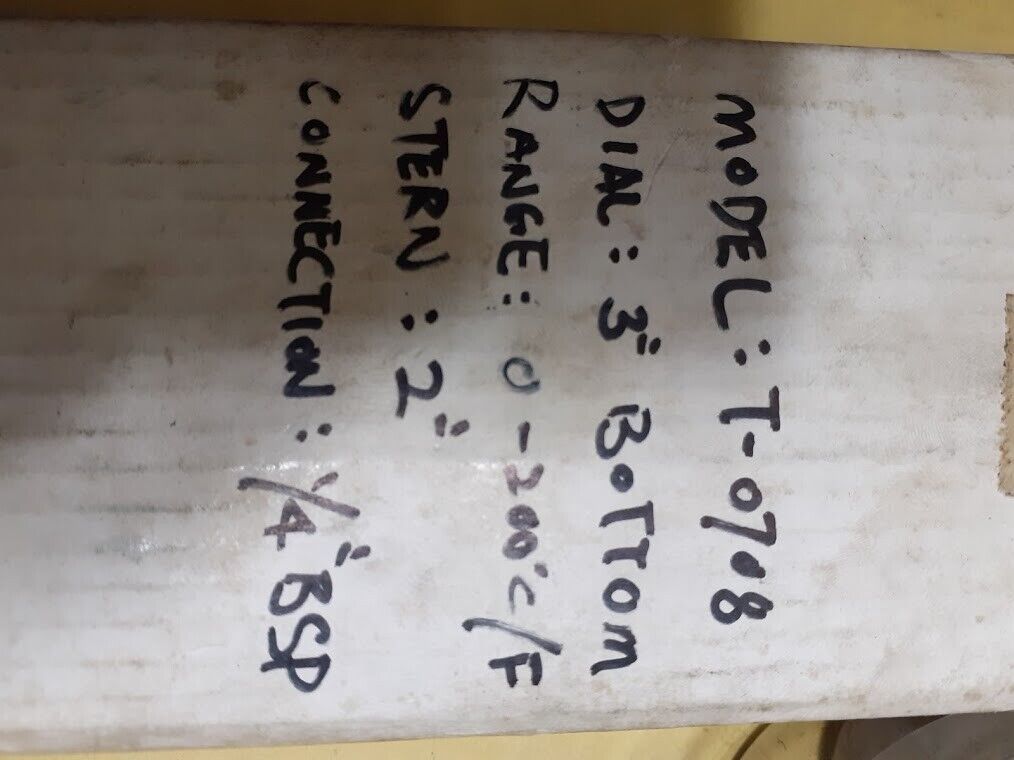 MODEL: T-0708
DIAL: 3" BOTTOM
RANGE: 0-200°C/F
STERN: 2"
CONNECTION: 1/4" BSP